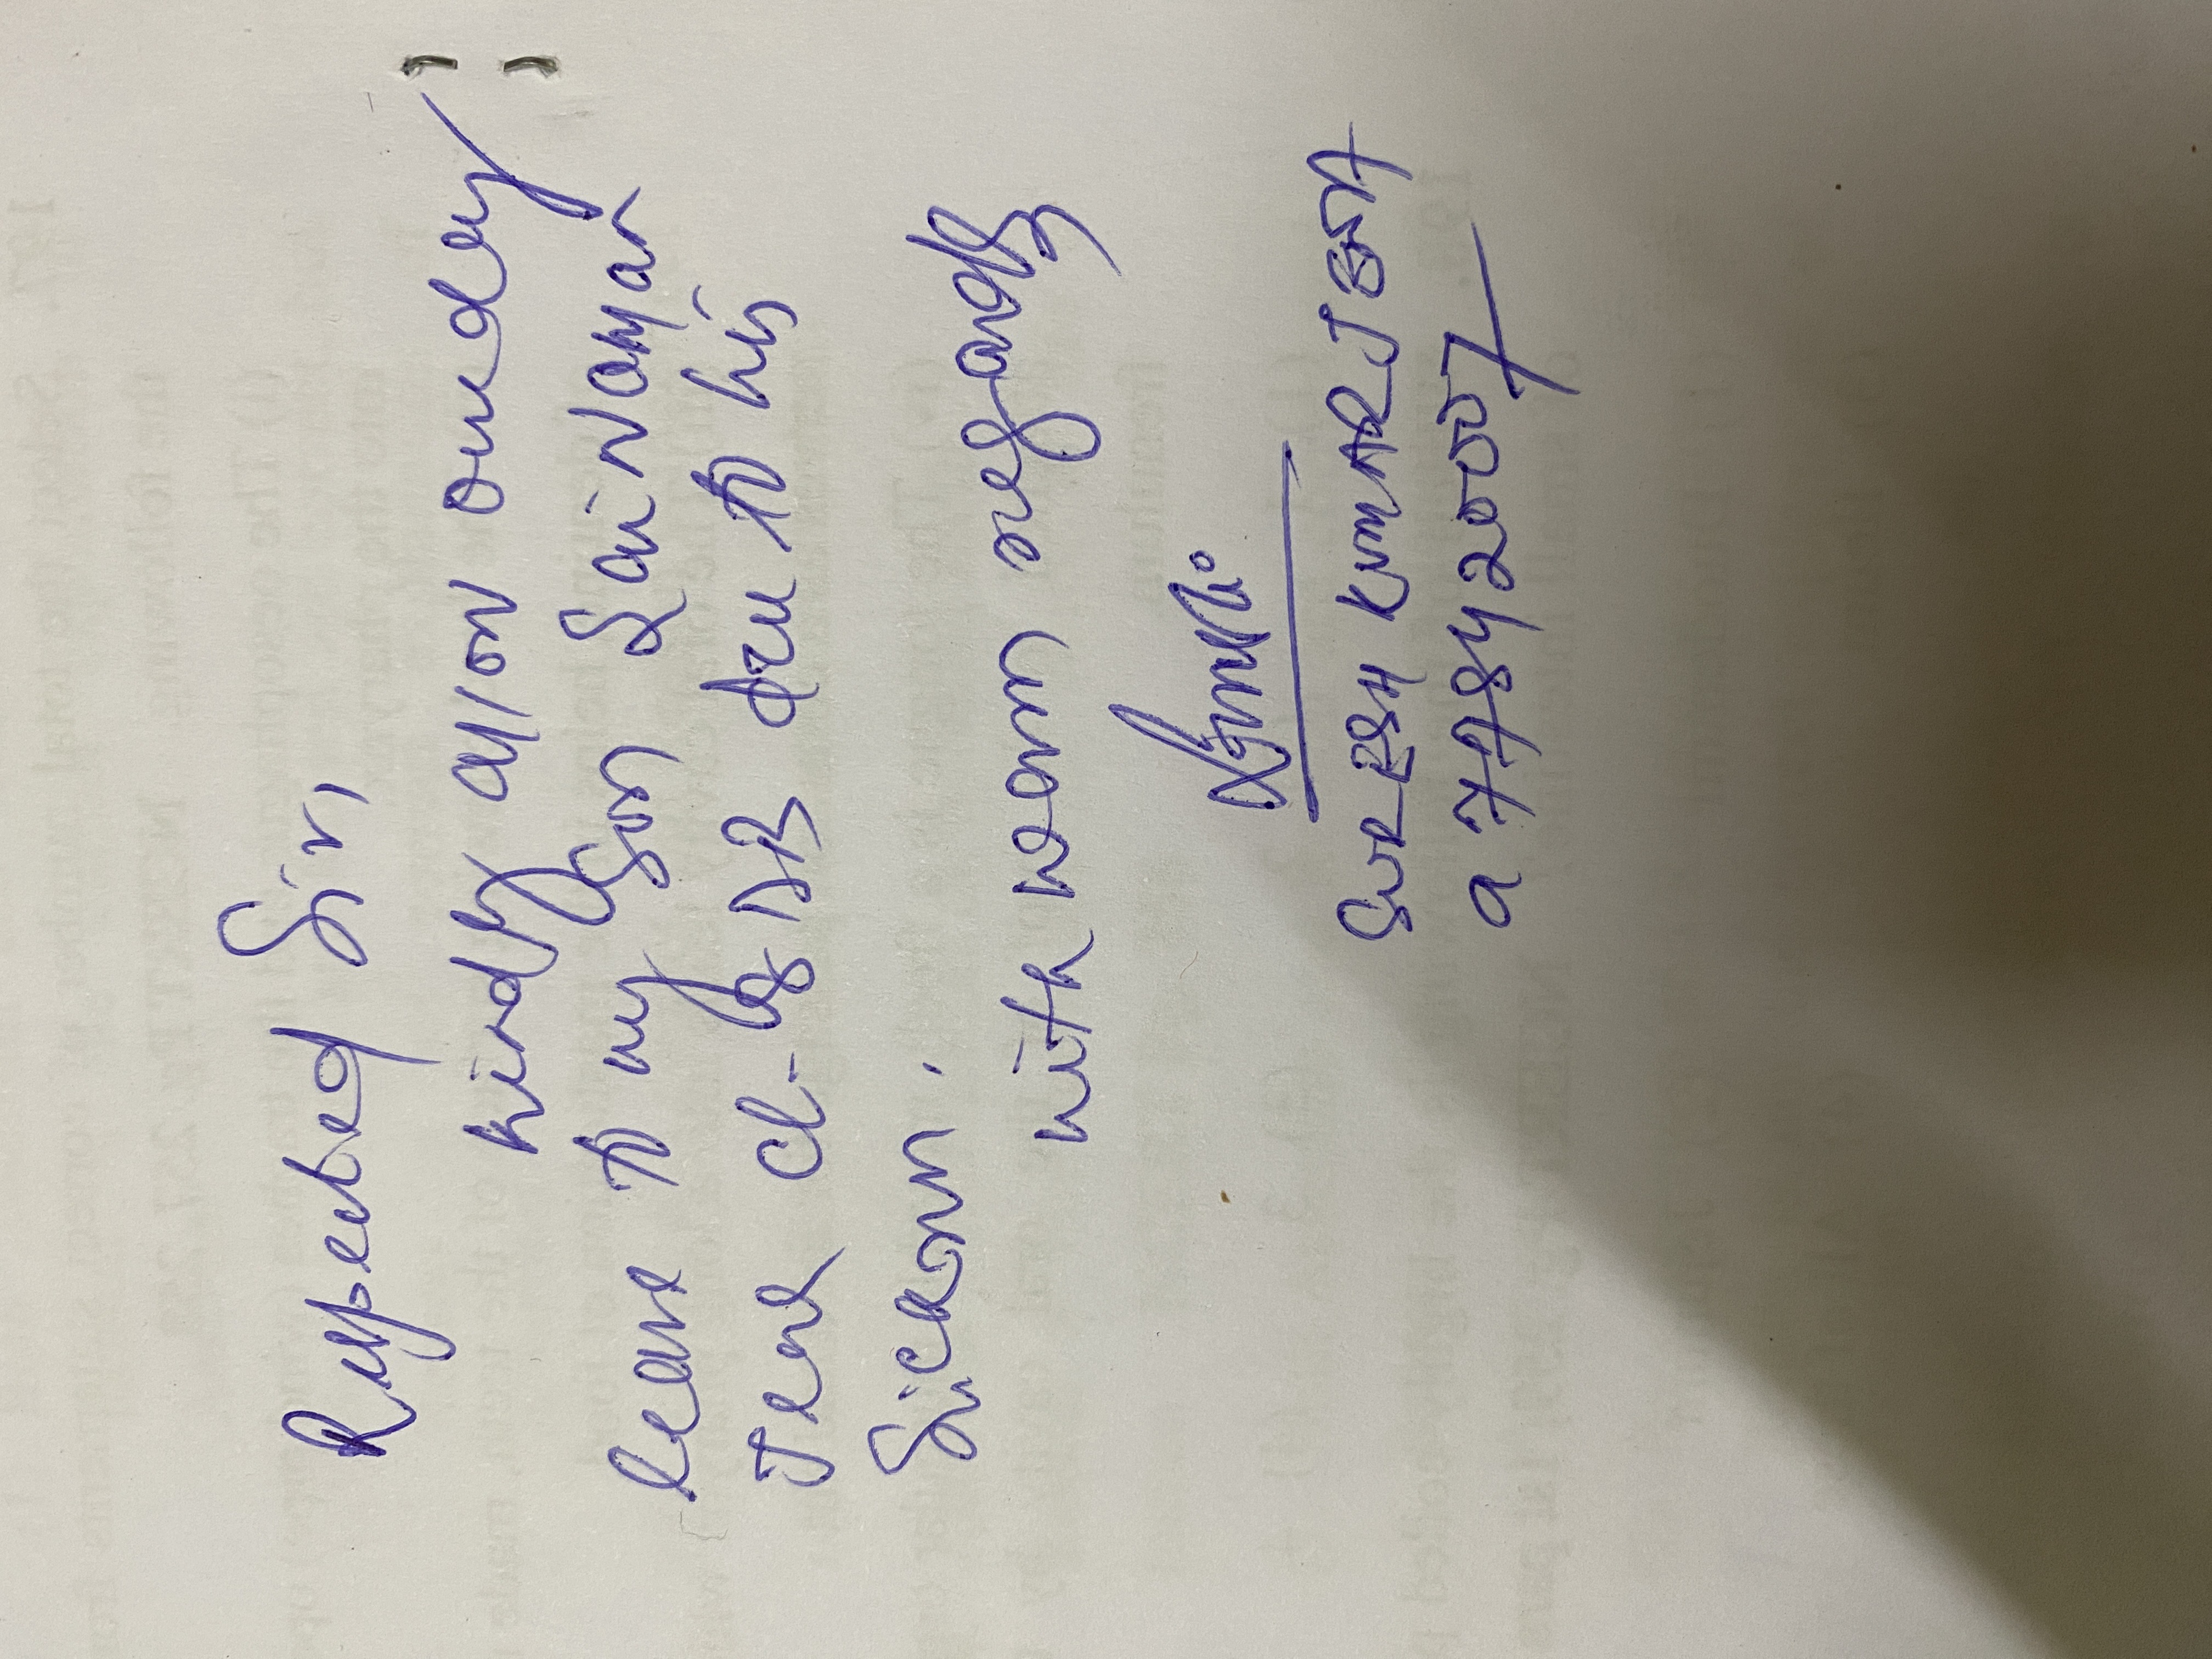 Respected Sir,
Kindly allow one day
leave to my Son Sai Nayan
Jena cl- 8 due to his
Sickom.
with warm regards
SURESH KUMAR JENA
9778420007